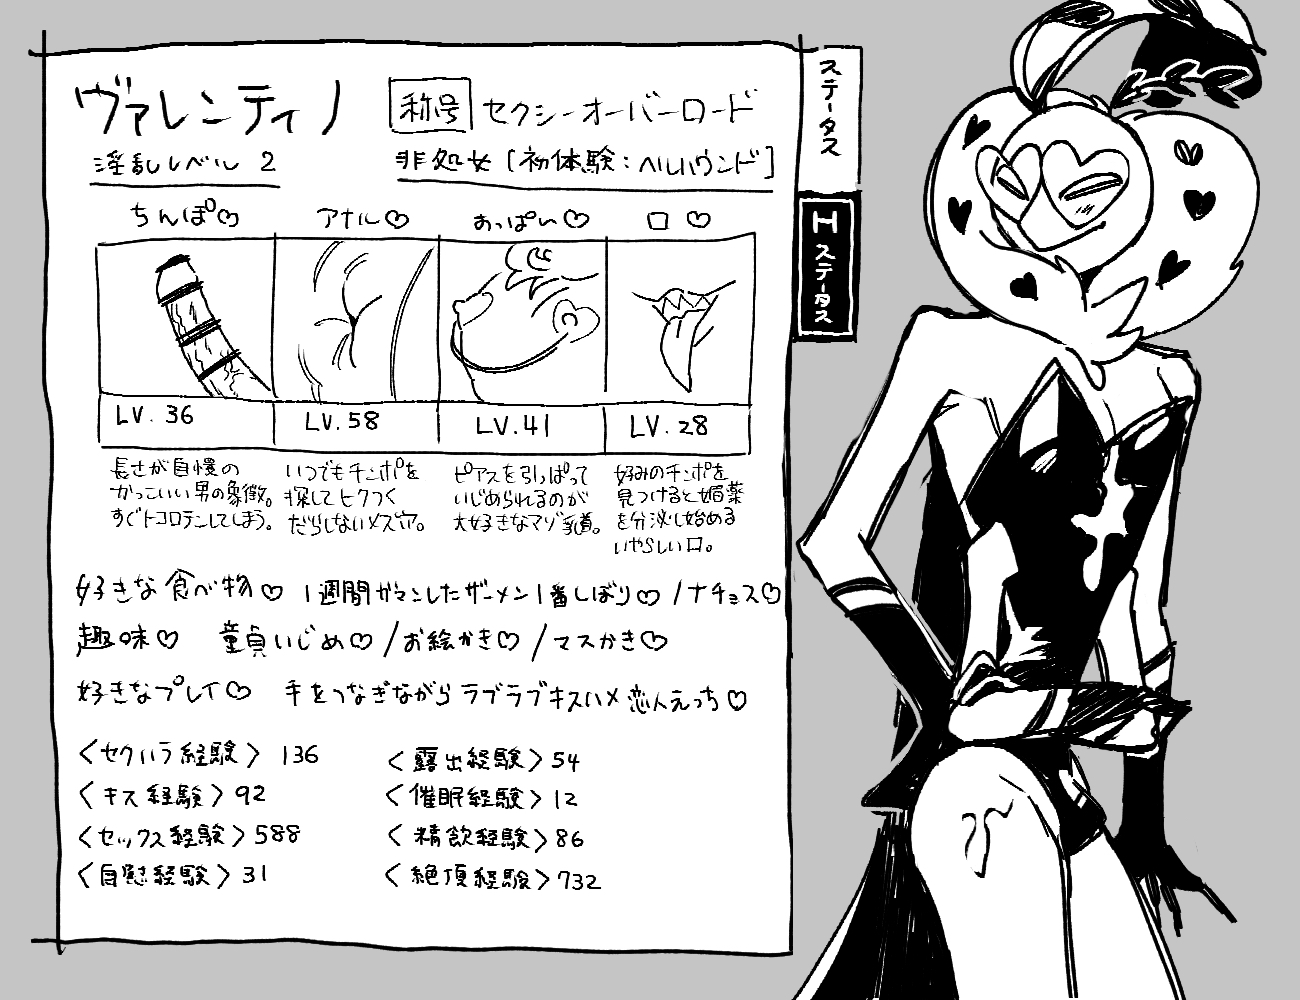 ヴァレンティノ
称号 セクシーオーバーロード
淫乱レベル 2
非処女 [初体験：ヘルハウンド]
ステータス
Hステータス
ちんぽ♡ アナル♡ おっぱい♡ 口♡
LV. 36 LV. 58 LV. 41 LV. 28
長さが自慢の
かっこいい男の象徴。
すぐトコロテンしてしまう。
いつでもチンポを
探してヒクつく
だらしないメス穴。
ピアスを引っぱって
いじめられるのが
大好きなマゾ乳首。
好みのチンポを
見つけると媚薬
を分泌し始める
いやらしい口。
好きな食べ物♡ 1週間ガマンしたザーメン1番しぼり♡ /ナチョス♡
趣味♡ 童貞いじめ♡ /お絵かき♡ /マスかき♡
好きなプレイ♡ 手をつなぎながらラブラブキスハメ恋人えっち♡
〈セクハラ経験〉 136
〈キス経験〉 92
〈セックス経験〉 588
〈自慰経験〉 31
〈露出経験〉 54
〈催眠経験〉 12
〈精飲経験〉 86
〈絶頂経験〉 732